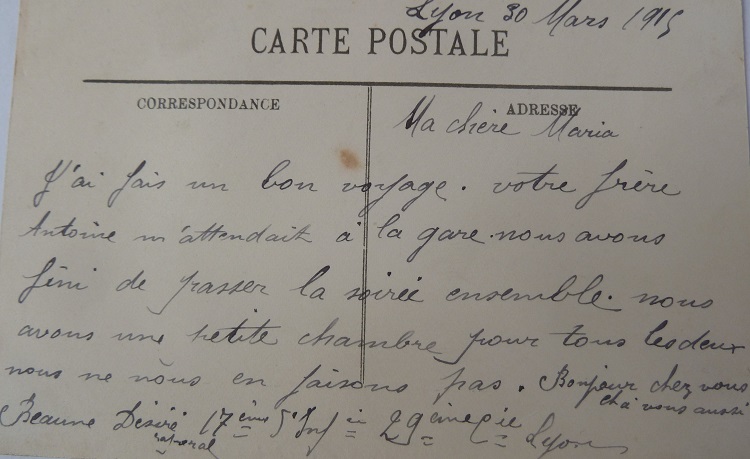 Lyon 30 Mars 1915
CARTE POSTALE
CORRESPONDANCE
ADRESSE
Ma chère Maria
J'ai fais un bon voyage. votre frère
Antoine m'attendait à la gare. nous avons
fini de passer la soirée ensemble. nous
avons une petite chambre pour tous les deux
nous ne nous en faisons pas. Bonjour chez vous
et à vous aussi
Beaune Désiré 17ème 29ème Cie Lyon
caporal